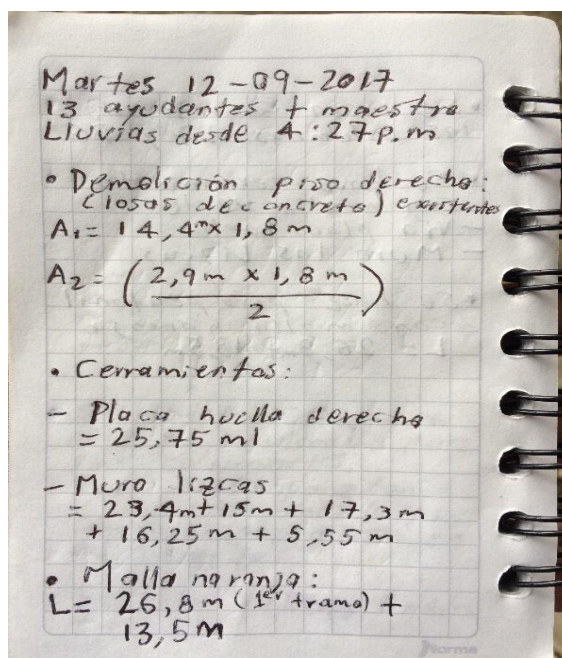 Martes 12-09-2017
13 ayudantes + maestro
Lluvias desde 4:27 p.m
• Demolición piso derecho:
(losas de concreto) existentes
A₁ = 14,4m x 1,8 m
A₂ = (2,9 m x 1,8 m / 2)
• Cerramientos:
- Placa huella derecha
= 25,75 ml
- Muro lizcas
= 23,4m + 15m + 17,3m
+ 16,25m + 5,55m
• Malla naranja:
L = 26,8m (1er tramo) +
13,5m
Norma